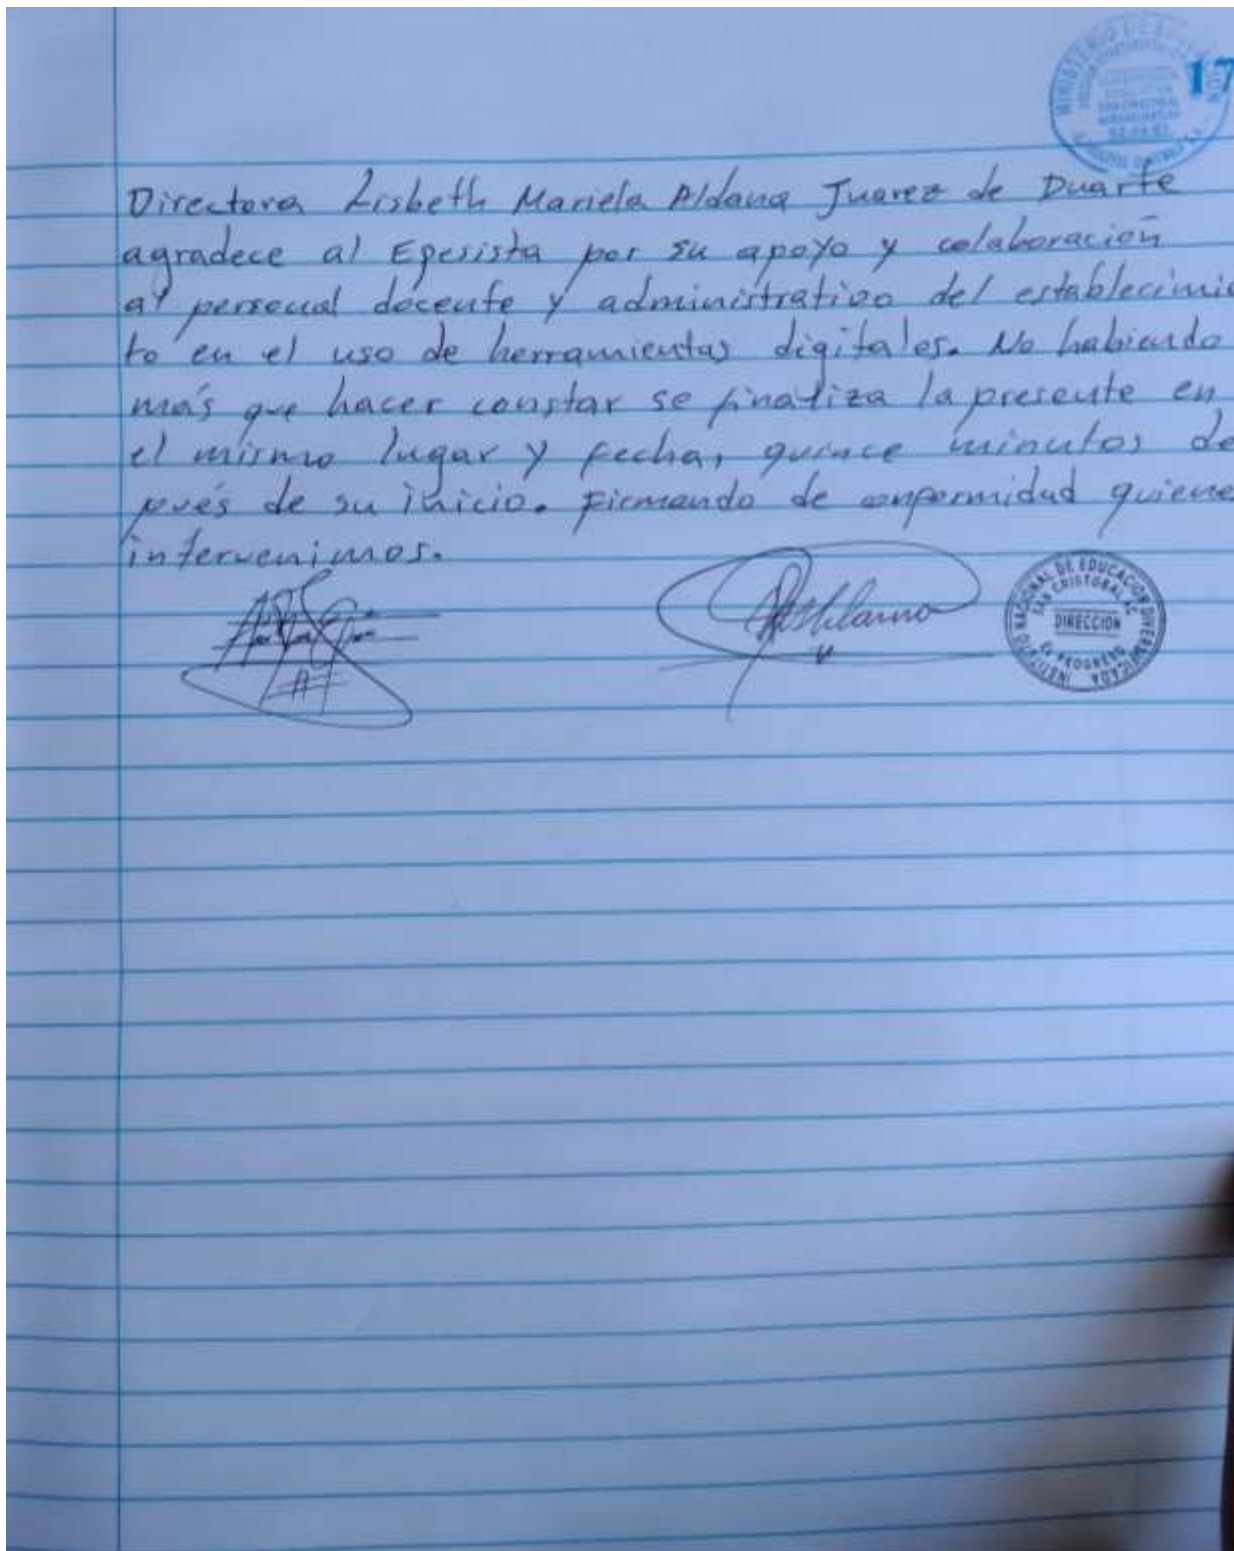 MINISTERIO DE EDUCACION
17
Directora Lisbeth Mariela Aldana Juarez de Duarte
agradece al Epesista por su apoyo y colaboración
al personal docente y administrativo del establecimie
to en el uso de herramientas digitales. No habiendo
más que hacer constar se finaliza la presente en
el mismo lugar y fecha, quince minutos de
pués de su inicio. Firmando de conformidad quiene
intervenimos.
INSTITUTO NACIONAL DE EDUCACION DIVERSIFICADA
SAN CRISTOBAL AC
DIRECCION
EL PROGRESO